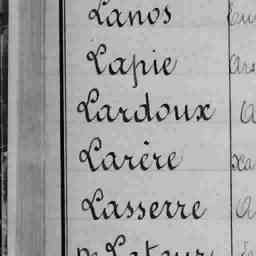 Lanos
Lapie
Lardoux
Larère
Lasserre
De Latour